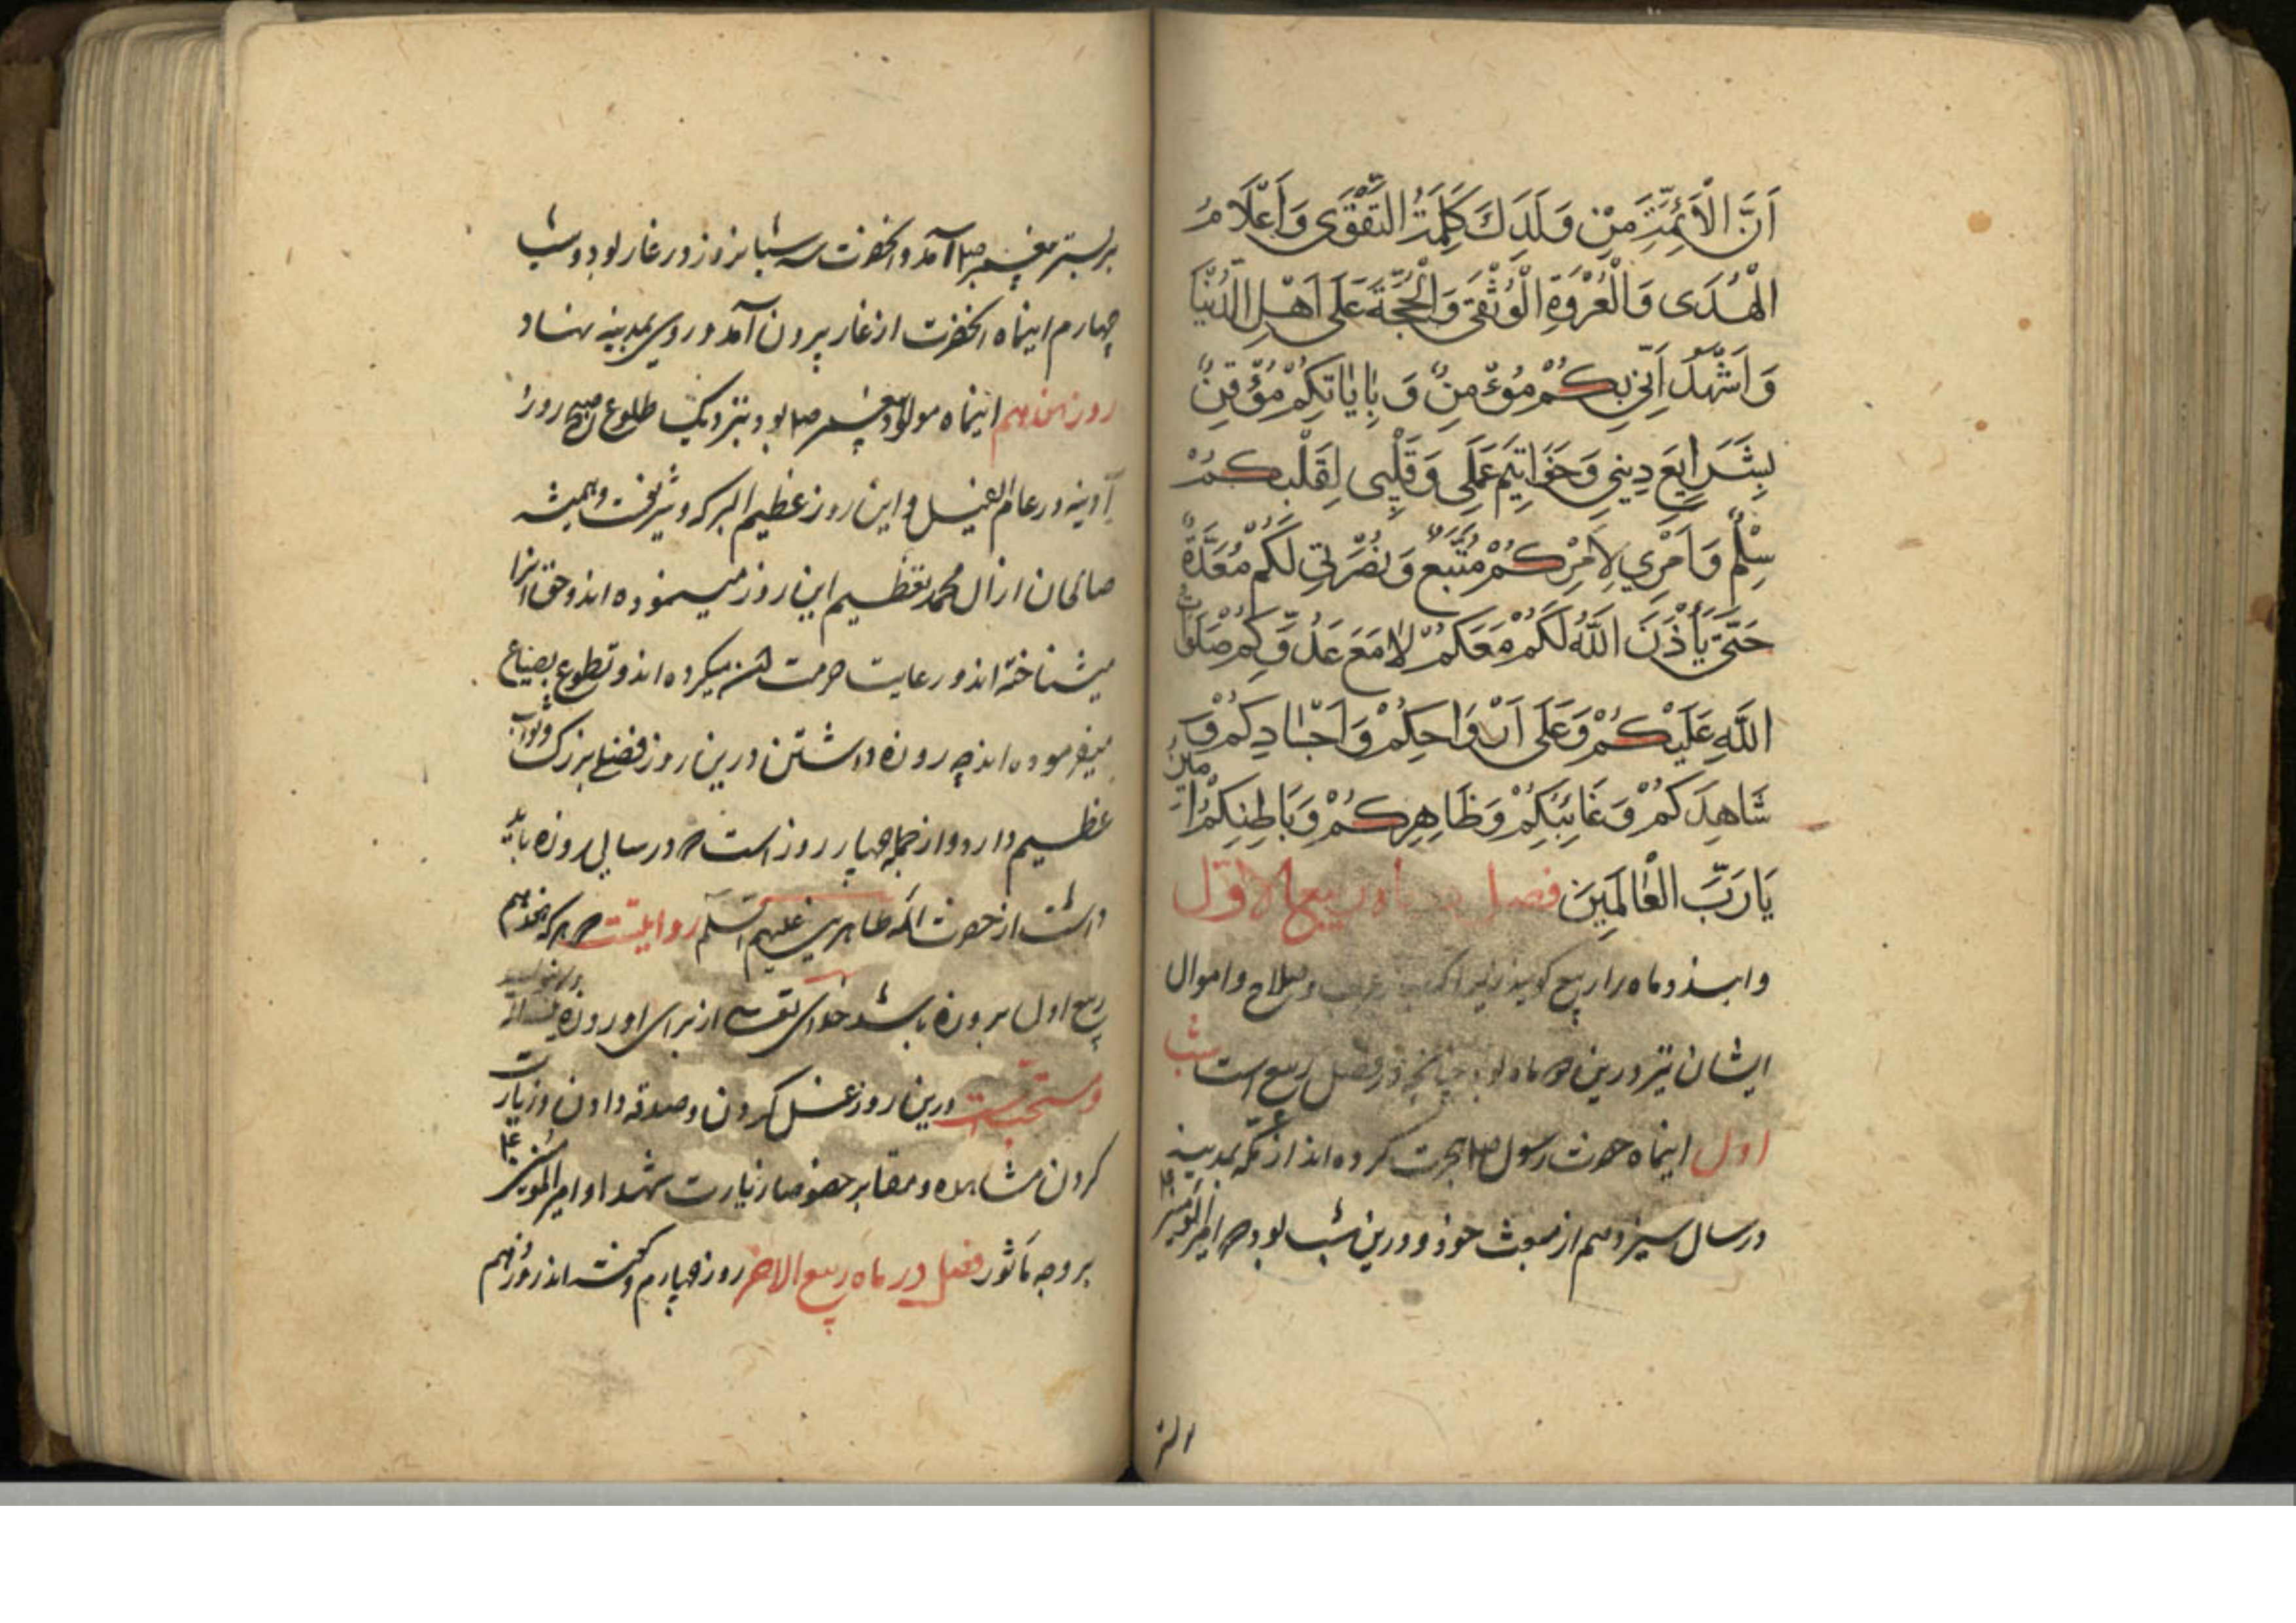 اَنَّ الْاَئِمَّةَ مِنْ وَلَدِكَ كَلِمَةُ التَّقْوَى وَاَعْلَامُ
الْهُدَى وَالْعُرْوَةِ الْوُثْقَى وَالْحُجَّةَ عَلَى اَهْلِ الدُّنْيَا
وَاَشْهَدُ اَنّي بِكُمْ مُؤْمِنٌ وَبِاِيَاتِكُمْ مُوْقِنٌ
بِشَرَايِعِ دِيني وَخَوَاتِيمِ عَمَلِي وَقَلْبِى لِقَلْبِكُمْ
سِلْمٌ وَاَمْرِي لِاَمْرِكُمْ مُتَّبِعٌ وَنُصْرَتِي لَكُمْ مُعَدَّةٌ
حَتَّى يَأْذَنَ اللَّهُ لَكُمْ مَعَكُمْ لَا مَعَ عَدُوِّكُمْ صَلَوَاتُ
اللَّهِ عَلَيْكُمْ وَعَلَى اَرْوَاحِكُمْ وَاَجْسَادِكُمْ وَ
شَاهِدِكُمْ وَغَائِبِكُمْ وَظَاهِرِكُمْ وَبَاطِنِكُمْ اٰمينَ
يَا رَبَّ الْعٰالَمِينَ فصل در ماه ربيع الاول
واين دو ماه را ربيع كويند زيرا كه وصلاح واموال
ايشان نيز درين دو ماه بود چنانچه در فصل ربيع است شب
اول اينماه حضرت رسول صلم هجرت كرده اند از مكه بمدينه
در سال سيزدهم از مبعث خود و درين شب بود كه امير المومنين ع
بر بستر
بر بستر پيغمبر صلم آمد و انحضرت سه شبانروز در غار بود و شب
چهارم اينماه انحضرت از غار بيرون آمد و روى بمدينه نهاد
روز هفدهم اينماه مولود پيغمبر صلم بود بنزديك طلوع صبح روز
آدينه در عام الفيل و اين روز عظيم البركه و شريفست و هميشه
صالحان از ال محمد تعظيم اين روز مينموده اند و حق انرا
ميشناخته اند و رعايت حرمت ان ميكرده اند و تطوع بصيام
ميفرموده اند چه روزه داشتن درين روز فضل بزرك و ثواب
عظيم دارد و از جمله چهار روز است كه در سالى روزه بايد
داشت از حضرت ائمه طاهرين عليهم السلم روايتست كه هر كه هفدهم
ربيع اول بروزه باشد خداى تعالى از براى او روزه يكساله
ومستحبست درين روز غسل كردن و صدقه دادن و زيارت
كردن مشاهده و مقابر خصوصا زيارت شهدا و امير المومنين ع
بر وجه مأثور فصل در ماه ربيع الاخر روز چهارم و كفته اند روز دهم